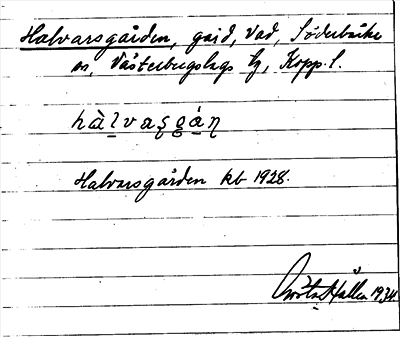 Halvarsgården, gård, Vad, Söderbärke
sn, Västerbergslags tg, Kopp. l.
hàlvaʂgáɳ
Halvarsgården kb 1928.
Gösta Hallén 1934